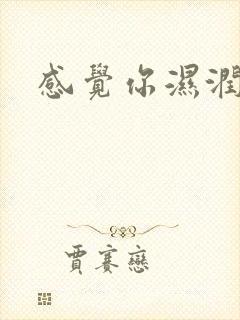 感覺你濕潤
賈賽戀